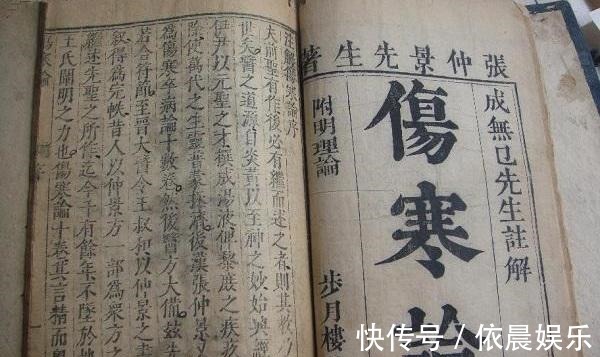 張仲景先生著
成無己先生註解
傷寒論
附明理論
步月樓
註解傷寒論序
夫前聖有作後必有繼而述之者則其教
世矣醫之道源自炎黃以至神之妙始興
伊尹以元聖之才撰成湯液俾黎庶之疾疢
除使萬代之生靈普蒙拯濟後漢張仲景
為傷寒卒病論十數卷然後醫方大備茲
若合符節至晉太醫令王叔和以仲景之
叙得為完帙昔人以仲景方一部為眾方
繼述先聖之所作迄今千有餘年不墜於地
王氏闡明之力也傷寒論十卷其言精而奧
傷寒論
快传号／依晨娱乐